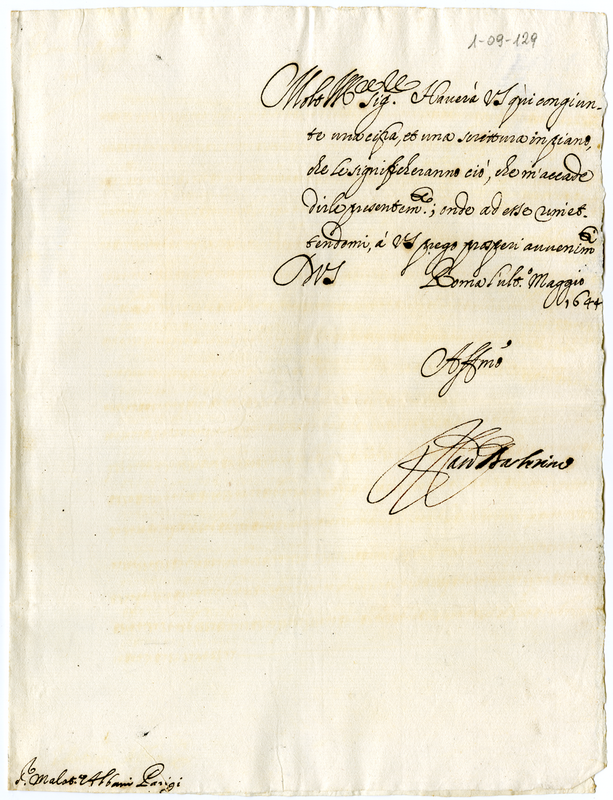 1-09-129
Molt' Ill.re Sig.re Haverà VS qui congiun-
te una cifra, et una scrittura in piano,
che le significheranno ciò, che m'accade
dirle presentem.te; onde ad esse rimet-
tendomi, à VS prego prosperi avvenim.ti
D VS Roma l'ult.o Maggio
1644
Aff.mo
Barberino
Parigi